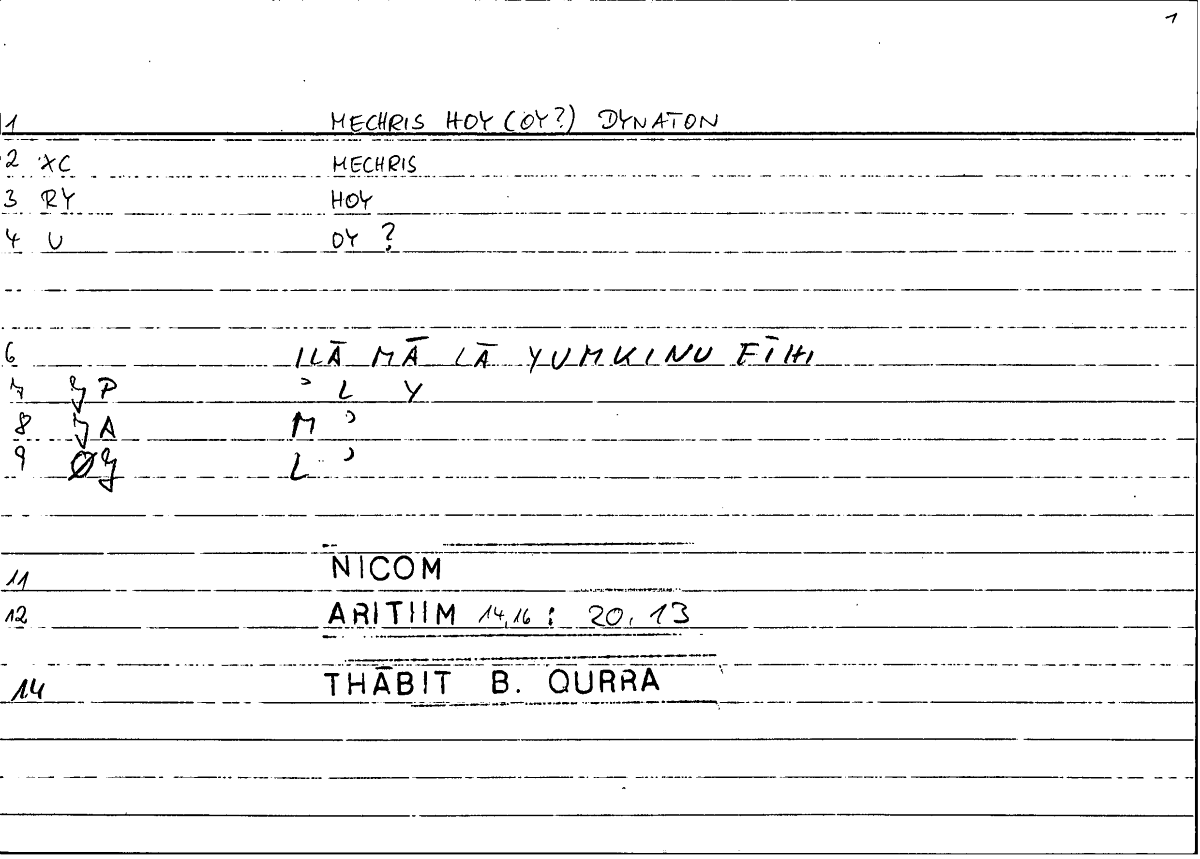 1
1 MECHRIS HOY (OY?) DYNATON
2 XC MECHRIS
3 RY HOY
4 U OY ?
6 ILĀ MĀ LĀ YUMKINU FĪHI
7 P ʾ L Y
8 A M ʾ
9 L ʾ
11 NICOM
12 ARITHM 14,16 : 20. 13
14 THĀBIT B. QURRA